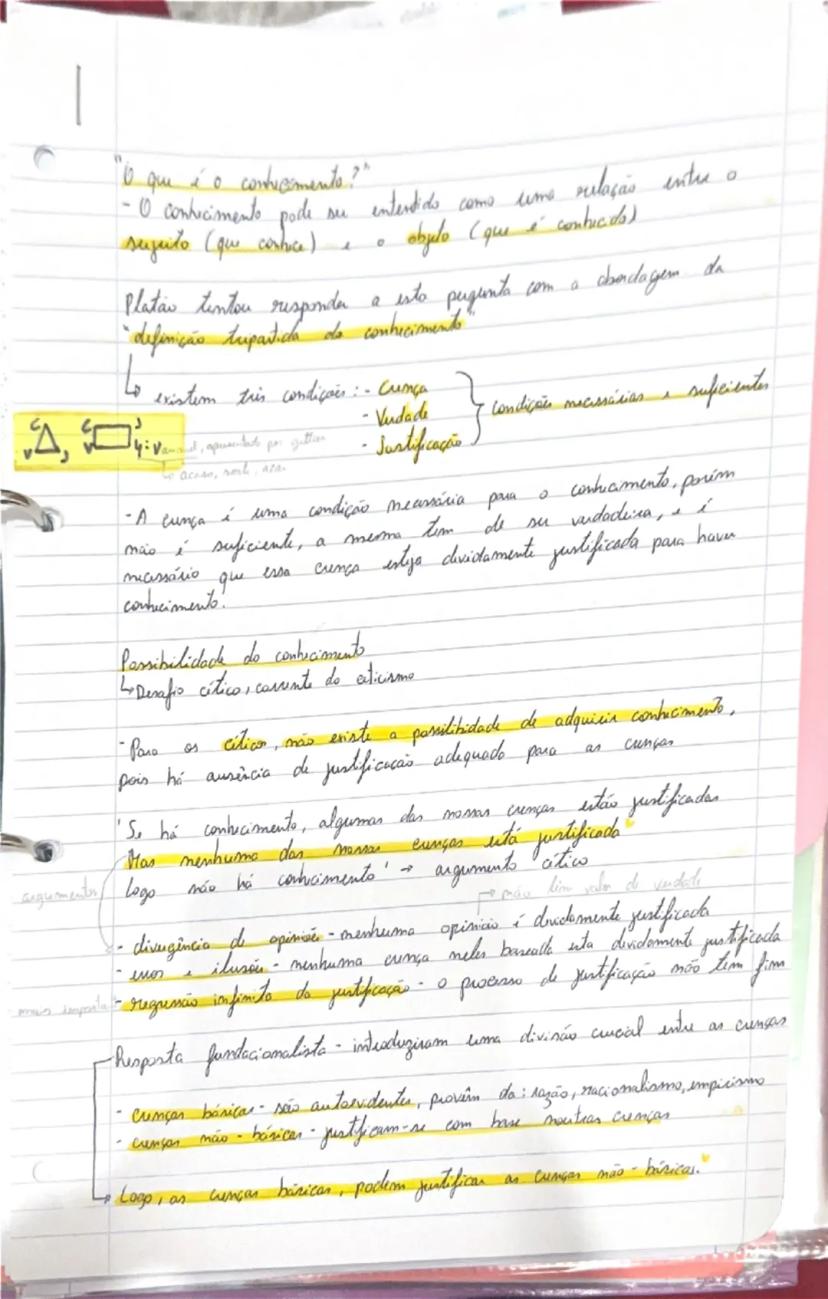 "O que é o conhecimento?"
- O conhecimento pode ser entendido como uma relação entre o
sujeito (que conhece) e o objeto (que é conhecido)
Platão tentou responder a esta pergunta com a abordagem da
"definição tripartida do conhecimento"
↳ existem três condições: - Crença
- Verdade
- Justificação
condições necessárias e suficientes
C V J, C V J 4:V
, apresentado por gettier
↳ acaso, sorte, azar
- A crença é uma condição necessária para o conhecimento, porém
não é suficiente, a mesma tem de ser verdadeira, e é
necessário que essa crença esteja dividamente justificada para haver
conhecimento!
Possibilidade do conhecimento
↳ Desafio cético, corrente do ceticismo
- Para os céticos, não existe a possilibidade de adquirir conhecimento,
pois há ausência de justificação adequada para as crenças
'Se há conhecimento, algumas das nossas crenças estão justificadas
Mas nenhuma das nossas crenças está justificada
Logo não há conhecimento' → argumento cético
argumentos
→ não tem valor de verdade
- divergência de opiniões - nenhuma opinião é dividamente justificada
- erros e ilusões - nenhuma crença neles baseada esta dividamente justificada
mais importa
- regressão infinita da justificação - o processo de justificação não tem fim
Resposta fundacionalista - introduziram uma divisão crucial entre as crenças
- crenças básicas - são autoevidentes, provêm da: razão, racionalismo, empirismo
- crenças não-básicas - justificam-se com base noutras crenças
Logo, as crenças básicas, podem justificar as crenças não-básicas.